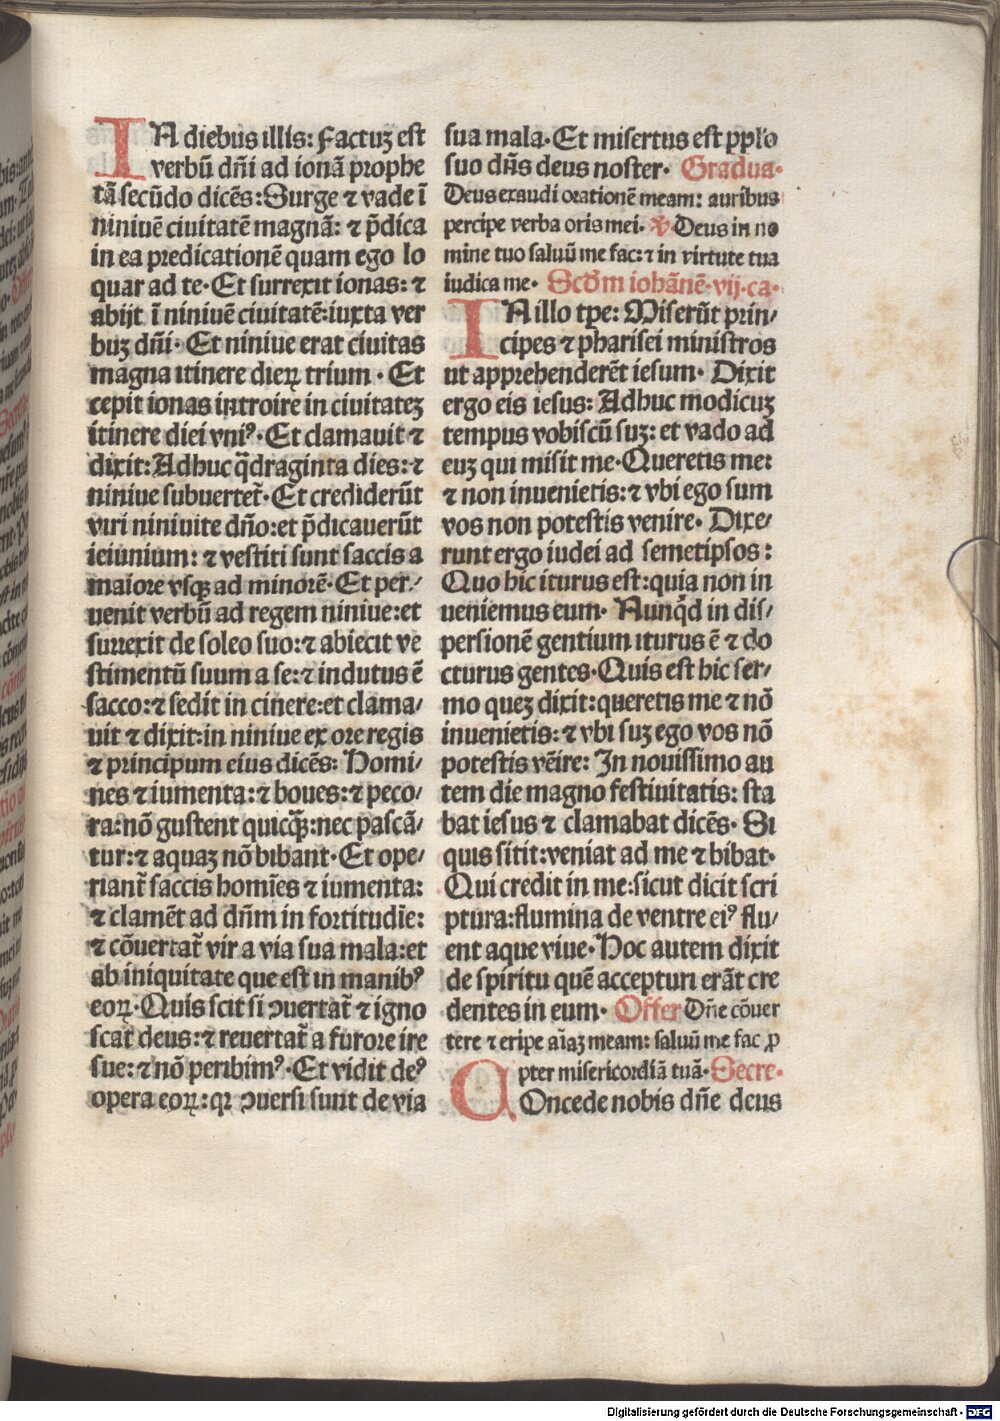 IN diebus illis: Factuꝫ est
verbū dn̄i ad ionā prophe
tā secūdo dicēs: Surge ⁊ vade ī
niniuē ciuitatē magnā: ⁊ p̄dica
in ea predicationē quam ego lo
quar ad te· Et surrexit ionas: ⁊
abijt ī niniuē ciuitatē: iuxta ver
buꝫ dn̄i· Et niniue erat ciuitas
magna itinere dieꝝ trium· Et
cepit ionas introire in ciuitateꝫ
itinere diei vniꝰ· Et clamauit ⁊
dixit: Adhuc q̄draginta dies: ⁊
niniue subuertet̄· Et crediderūt
viri niniuite dn̄o: et p̄dicauerūt
ieiunium: ⁊ vestiti sunt saccis a
maiore vsqꝫ ad minorē· Et per⸗
uenit verbū ad regem niniue: et
surrexit de soleo suo: ⁊ abiecit ve
stimentū suum a se: ⁊ indutus ē
sacco: ⁊ sedit in cinere: et clama⸗
uit ⁊ dixit: in niniue ex ore regis
⁊ principum eius dicēs: Homi⸗
nes ⁊ iumenta: ⁊ boues: ⁊ peco⸗
ra: nō gustent quicqꝫ̄: nec pascā⸗
tur: ⁊ aquaꝫ nō bibant· Et ope⸗
riant̄ saccis homīes ⁊ iumenta:
⁊ clamēt ad dn̄m in fortitudīe:
⁊ cōuertat̄ vir a via sua mala: et
ab iniquitate que est in manibꝰ
eoꝝ· Quis scit si ꝯuertat̄ ⁊ igno
scat deus: ⁊ reuertat̄ a furore ire
sue: ⁊ nō peribimꝰ· Et vidit deꝰ
opera eoꝝ: qꝛ ꝯuersi sunt de via
sua mala· Et misertus est pplo
suo dn̄s deus noster· Gradua·
Deus exaudi orationē meam: auribus
percipe verba oris mei· ℣ Deus in no
mine tuo saluū me fac: ⁊ in virtute tua
iudica me· Scd̄m iohānē· vij· ca·
IN illo tpe: Miserūt prin⸗
cipes ⁊ pharisei ministros
ut apprehenderēt iesum· Dixit
ergo eis iesus: Adhuc modicuꝫ
tempus vobiscū suꝫ: et vado ad
euꝫ qui misit me· Queretis me:
⁊ non inuenietis: ⁊ vbi ego sum
vos non potestis venire· Dixe⸗
runt ergo iudei ad semetipsos:
Quo hic iturus est: quia non in
ueniemus eum· Nunq̄d in dis⸗
persionē gentium iturus ē ⁊ do
cturus gentes· Quis est hic ser⸗
mo queꝫ dixit: queretis me ⁊ nō
inuenietis: ⁊ vbi suꝫ ego vos nō
potestis vēire: In nouissimo au
tem die magno festiuitatis: sta
bat iesus ⁊ clamabat dicēs· Si
quis sitit: veniat ad me ⁊ bibat·
Qui credit in me: sicut dicit scri
ptura: flumina de ventre eiꝰ flu⸗
ent aque viue· Hoc autem dixit
de spiritu quē accepturi erāt cre
dentes in eum· Offer Dn̄e cōuer
tere ⁊ eripe aīaꝫ meam: saluū me fac ꝓ
pter misericordiā tuā· Secre·
COncede nobis dn̄e deus
Digitalisierung gefördert durch die Deutsche Forschungsgemeinschaft - DFG